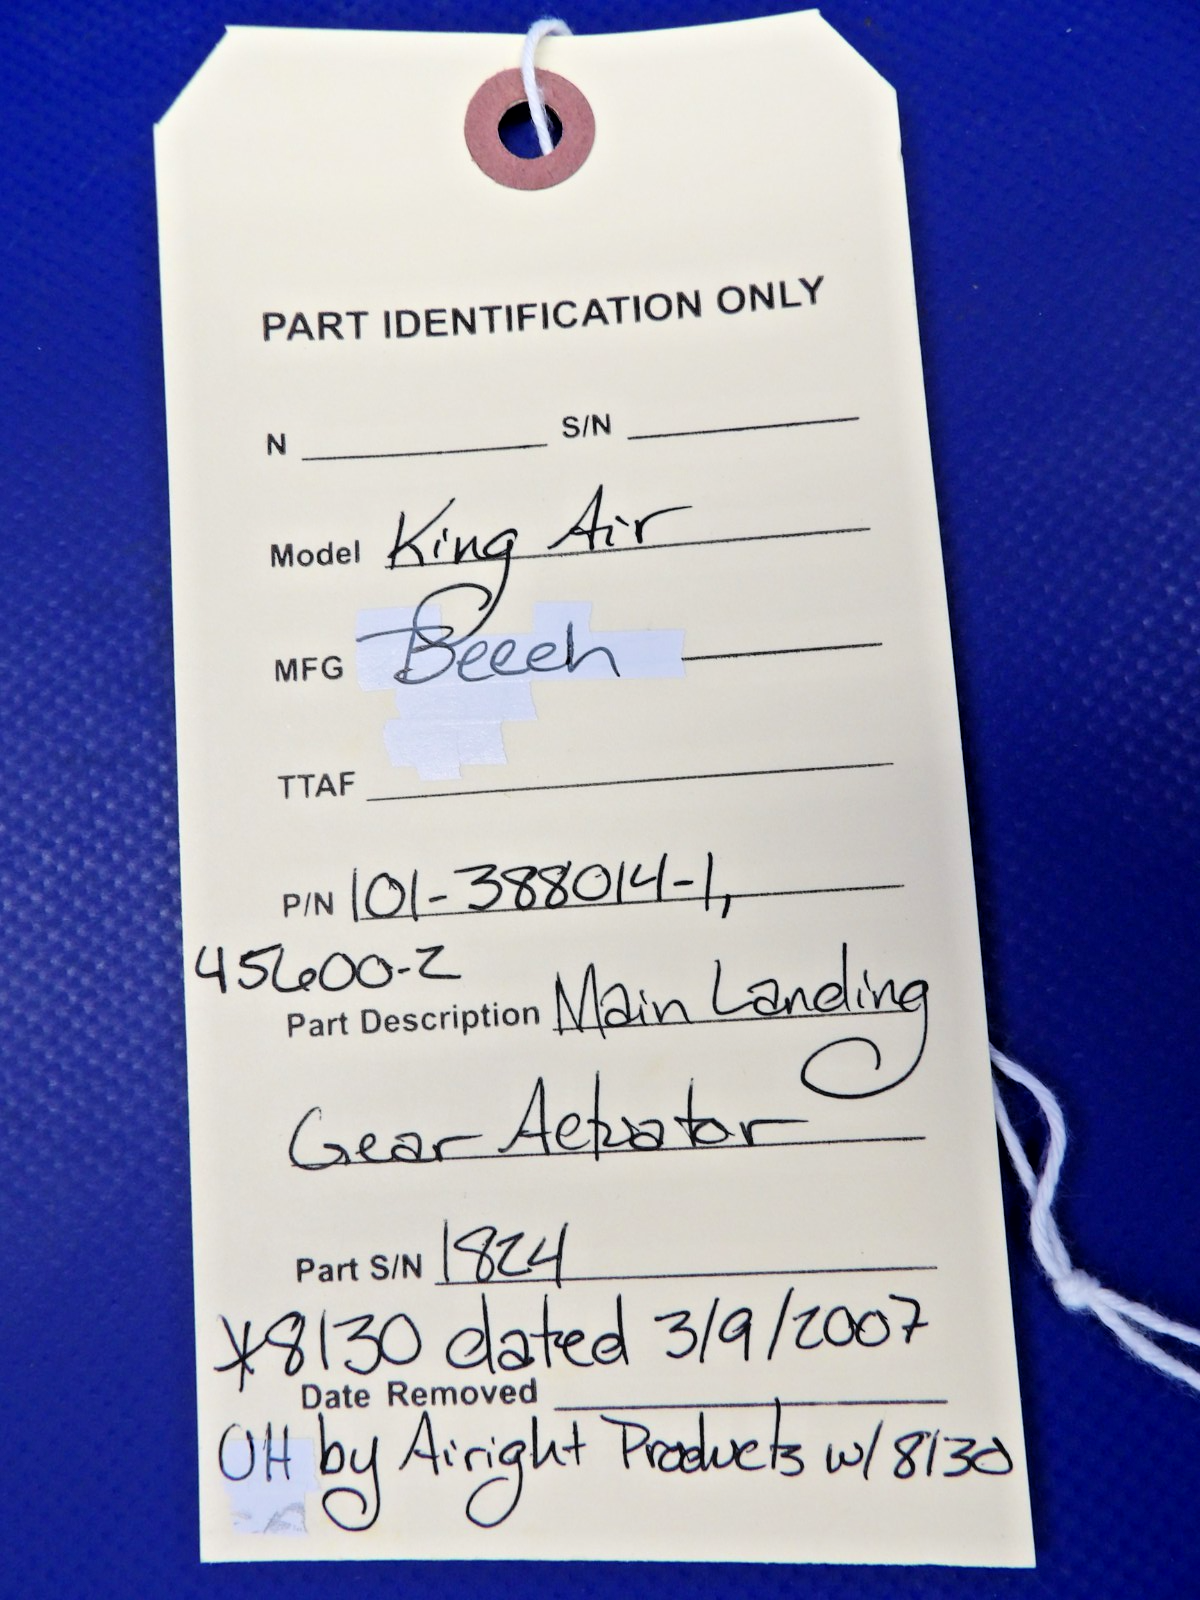 PART IDENTIFICATION ONLY
N S/N
Model King Air
MFG Beech
TTAF
P/N 101-388014-1,
45600-2
Part Description Main Landing
Gear Actuator
Part S/N 1824
*8130 dated 3/9/2007
Date Removed
OH by Airight Products w/ 8130